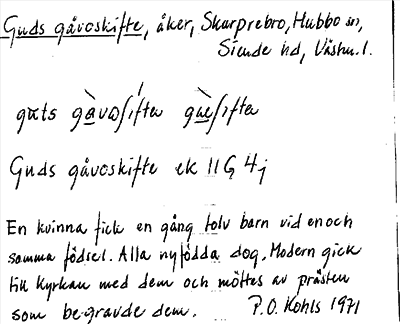 Guds gåvoskifte, åker, Skarprebro, Hubbo sn,
Siende hd, Västm. l.
Guds gåvoskifte ek 11G 4j
En kvinna fick en gång tolv barn vid en och
samma födsel. Alla nyfödda dog. Modern gick
till kyrkan med dem och möttes av prästen
som begravde dem. P.O. Kohls 1971